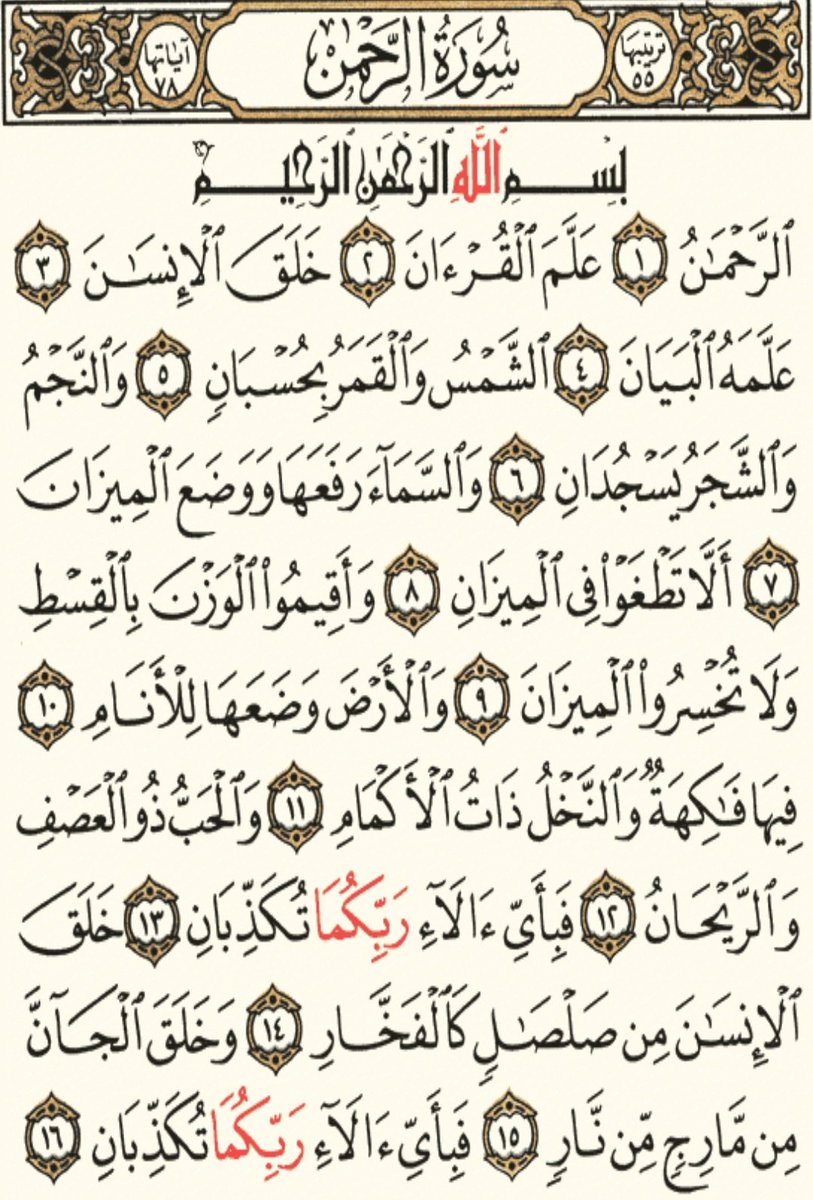 ترتيبها ٥٥ سُورَةُ الرَّحْمٰن آياتها ٧٨
بِسْمِ ٱللَّهِ ٱلرَّحْمَٰنِ ٱلرَّحِيمِ
ٱلرَّحْمَٰنُ ١ عَلَّمَ ٱلْقُرْءَانَ ٢ خَلَقَ ٱلْإِنسَٰنَ ٣
عَلَّمَهُ ٱلْبَيَانَ ٤ ٱلشَّمْسُ وَٱلْقَمَرُ بِحُسْبَانٍ ٥ وَٱلنَّجْمُ
وَٱلشَّجَرُ يَسْجُدَانِ ٦ وَٱلسَّمَآءَ رَفَعَهَا وَوَضَعَ ٱلْمِيزَانَ
٧ أَلَّا تَطْغَوْا۟ فِى ٱلْمِيزَانِ ٨ وَأَقِيمُوا۟ ٱلْوَزْنَ بِٱلْقِسْطِ
وَلَا تُخْسِرُوا۟ ٱلْمِيزَانَ ٩ وَٱلْأَرْضَ وَضَعَهَا لِلْأَنَامِ ١٠
فِيهَا فَٰكِهَةٌ وَٱلنَّخْلُ ذَاتُ ٱلْأَكْمَامِ ١١ وَٱلْحَبُّ ذُو ٱلْعَصْفِ
وَٱلرَّيْحَانُ ١٢ فَبِأَىِّ ءَالَآءِ رَبِّكُمَا تُكَذِّبَانِ ١٣ خَلَقَ
ٱلْإِنسَٰنَ مِن صَلْصَٰلٍ كَٱلْفَخَّارِ ١٤ وَخَلَقَ ٱلْجَآنَّ
مِن مَّارِجٍ مِّن نَّارٍ ١٥ فَبِأَىِّ ءَالَآءِ رَبِّكُمَا تُكَذِّبَانِ ١٦